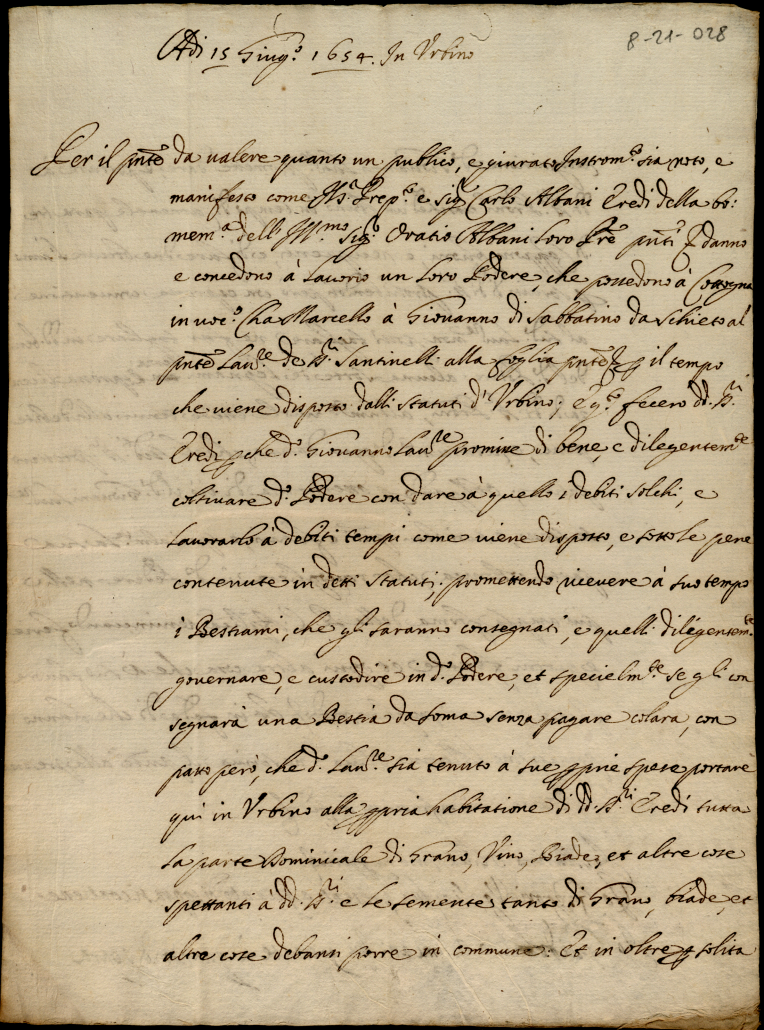 8-21-028
Adi 15 Giug.º 1654. In Urbino
Per il pñte da valere quanto un publico, e giurato Instrom.to sia noto, e
manifesto come Ms.r Prep.to e sig.r Carlo Albani Eredi della bo:
mem.a dell' Ill.mo Sig.r Oratio Albani loro Pre pñti danno
e concedono à lavorio un loro Podere, che possedono à
in voc.o Cha Marcello à Giovanno di Sabbatino da Schieto al
pñte Lau.re de SS.ri Santinelli alla Foglia pñte il tempo
che viene disposto dalli Statuti d'Urbino; e q.to fecero dd. SS.ri
Eredi che d.o Giovanno Lau.re promise di bene, e diligentem.te
coltivare d.o Podere con dare à quello i debiti solchi, e
lavorarlo à debiti tempi come viene disposto, e sotto le pene
contenute in detti Statuti; promettendo ricevere à suo tempo
i Bestiami, che gli saranno consegnati, e quelli diligentem.te
governare, e custodire in d.o Podere, et specielm.te se gli con
segnarà una Bestia da soma senza pagare colara, con
patto però, che d.o Lau.re sia tenuto à sue pprie spese portare
qui in Urbino alla ppria habitatione di dd. SS.ri Eredi tutta
la parte Dominicale di Grano, Vino, Biade, et altre cose
spettanti à dd. SS.ri e le semente tanto di Grano, biade, et
altre cose debansi porre in commune: Et in oltre p solita